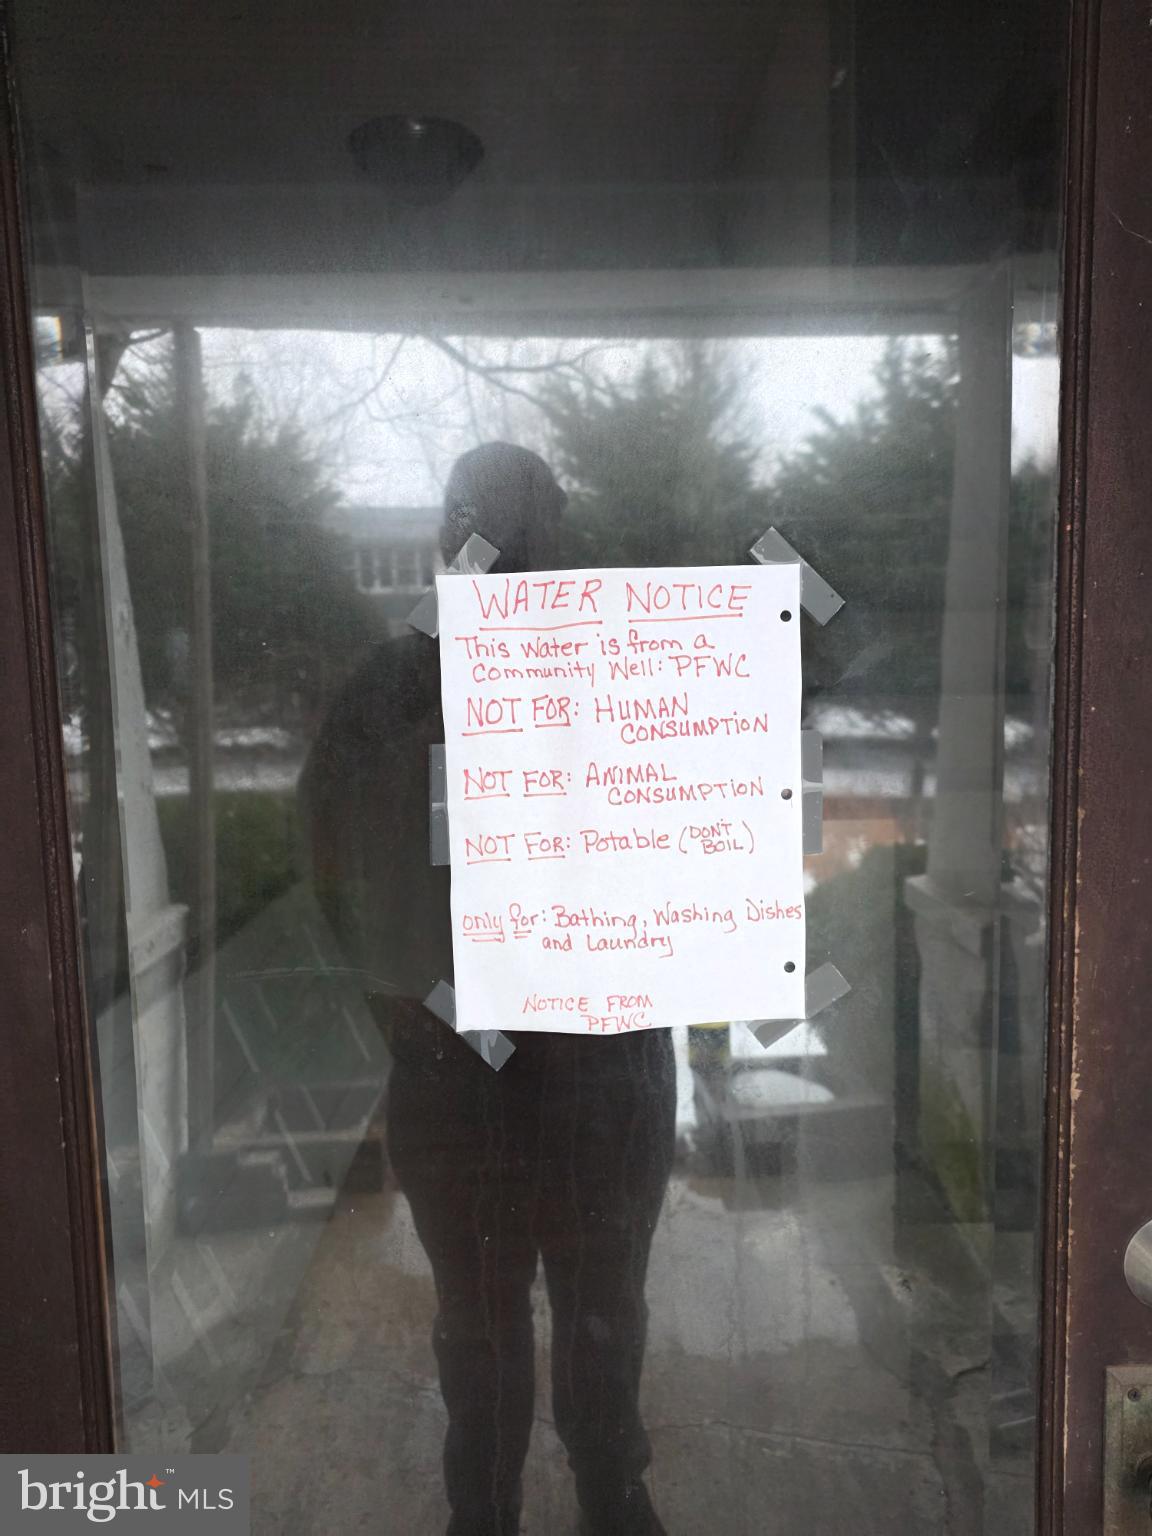 WATER NOTICE
This Water is from a
Community Well: PFWC
NOT FOR: HUMAN
CONSUMPTION
NOT FOR: ANIMAL
CONSUMPTION
NOT FOR: Potable (DON'T
BOIL)
only for: Bathing, Washing Dishes
and Laundry
NOTICE FROM
PFWC
bright™ MLS